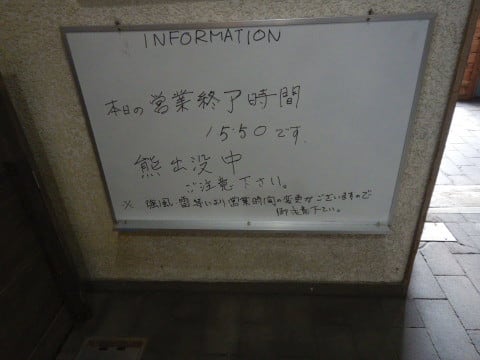 INFORMATION
本日の営業終了時間
15:50です。
熊出没中
ご注意下さい。
※ 強風・雷等により営業時間の変更がございますので
御注意下さい。